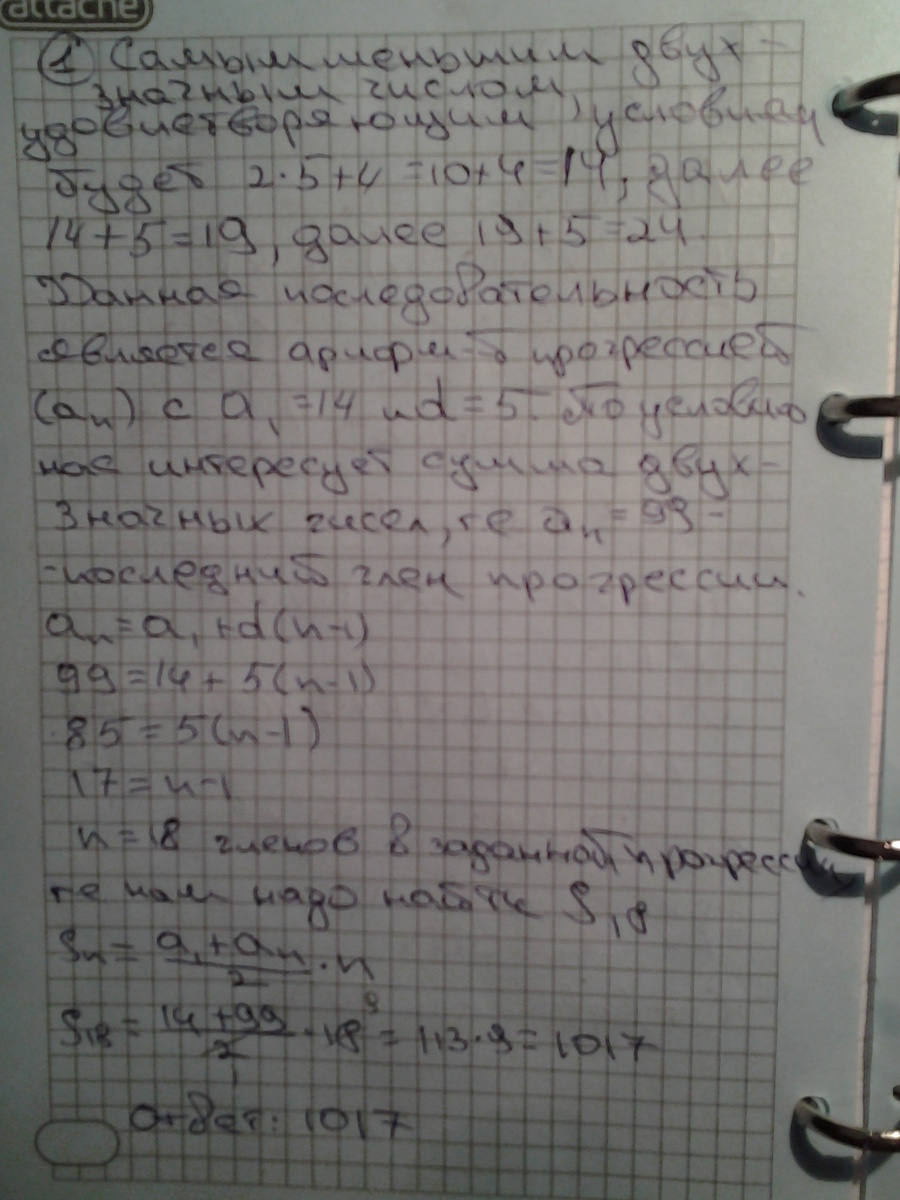 attache
① Самым меньшим двух-
значным числом,
удовлетворяющим условиям
будет 2·5+4=10+4=14, далее
14+5=19, далее 19+5=24.
Данная последовательность
является арифм-й прогрессией
(aₙ) с a₁=14 и d=5. По условию
нас интересует сумма двух-
значных чисел, те aₙ=99-
-последний член прогрессии.
aₙ=a₁+d(n-1)
99=14+5(n-1)
85=5(n-1)
17=n-1
n=18 членов в заданной прогрессии,
те нам надо найти S₁₈
Sₙ=(a₁+aₙ)/2·n
S₁₈=(14+99)/2·18⁹=113·9=1017
Ответ: 1017